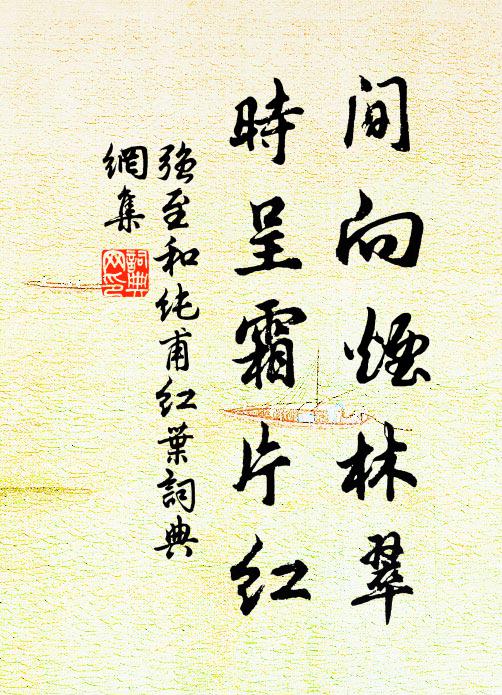 间向煙林翠
時呈霜片红
强至和纯甫红葉詞典
網集
詞典网印